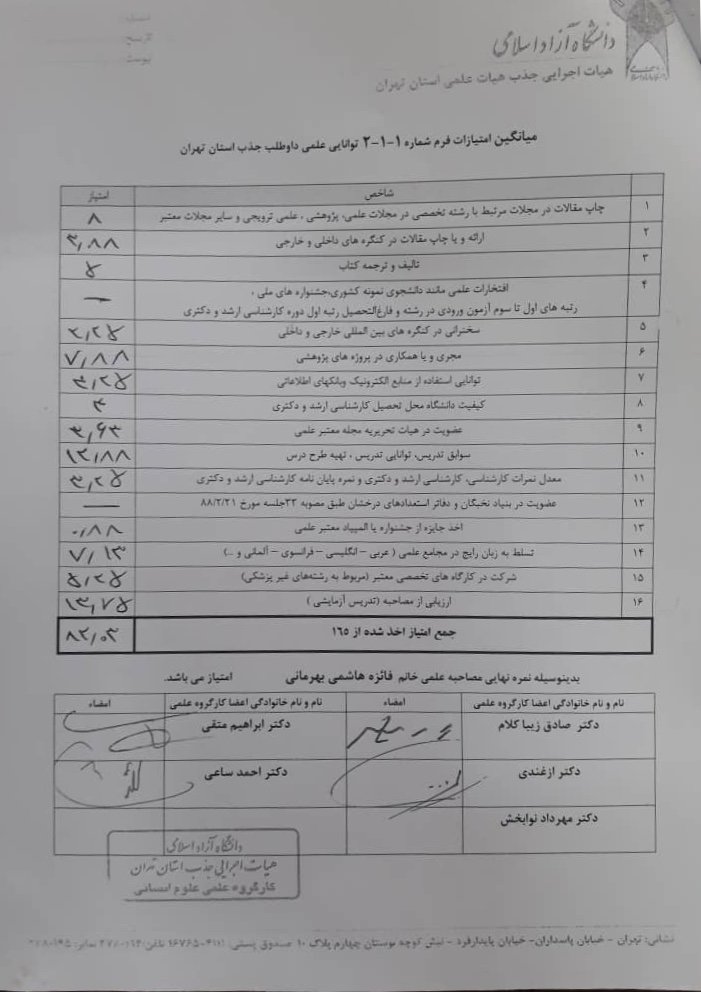 شماره
تاریخ
پیوست
دانشگاه آزاد اسلامی
هیات اجرایی جذب هیات علمی استان تهران
میانگین امتیازات فرم شماره ۱-۱-۲ توانایی علمی داوطلب جذب استان تهران
شاخص امتیاز
۱ چاپ مقالات در مجلات مرتبط با رشته تخصصی در مجلات علمی، پژوهشی ، علمی ترویجی و سایر مجلات معتبر ۸
۲ ارائه و یا چاپ مقالات در کنگره های داخلی و خارجی ۳,۸۸
۳ تالیف و ترجمه کتاب ۵
۴ افتخارات علمی مانند دانشجوی نمونه کشوری،جشنواره های ملی ، —
رتبه های اول تا سوم آزمون ورودی در رشته و فارغ‌التحصیل رتبه اول دوره کارشناسی ارشد و دکتری
۵ سخنرانی در کنگره های بین المللی خارجی و داخلی ۲,۲۵
۶ مجری و یا همکاری در پروژه های پژوهشی ۷,۸۸
۷ توانایی استفاده از منابع الکترونیک وبانکهای اطلاعاتی ۳,۲۵
۸ کیفیت دانشگاه محل تحصیل کارشناسی ارشد و دکتری ۴
۹ عضویت در هیات تحریریه مجله معتبر علمی ۳,۶۳
۱۰ سوابق تدریس، توانایی تدریس ، تهیه طرح درس ۱۲,۸۸
۱۱ معدل نمرات کارشناسی، کارشناسی ارشد و دکتری و نمره پایان نامه کارشناسی ارشد و دکتری ۳,۲۵
۱۲ عضویت در بنیاد نخبگان و دفاتر استعدادهای درخشان طبق مصوبه ۳۳جلسه مورخ ۸۸/۲/۲۱ —
۱۳ اخذ جایزه از جشنواره یا المپیاد معتبر علمی ۰,۸۸
۱۴ تسلط به زبان رایج در مجامع علمی ( عربی – انگلیسی – فرانسوی – آلمانی و ..) ۷,۱۳
۱۵ شرکت در کارگاه های تخصصی معتبر (مربوط به رشته‌های غیر پزشکی) ۵,۲۵
۱۶ ارزیابی از مصاحبه (تدریس آزمایشی ) ۱۳,۷۵
جمع امتیاز اخذ شده از ۱۶۵ ۸۲,۰۳
بدینوسیله نمره نهایی مصاحبه علمی خانم فائزه هاشمی بهرمانی امتیاز می باشد.
نام و نام خانوادگی اعضا کارگروه علمی امضاء نام و نام خانوادگی اعضا کارگروه علمی امضاء
دکتر صادق زیبا کلام دکتر ابراهیم متقی
دکتر ازغندی دکتر احمد ساعی
دکتر مهرداد نوابخش
دانشگاه آزاد اسلامی
هیات اجرایی جذب استان تهران
کارگروه علمی علوم انسانی
نشانی: تهران - خیابان پاسداران- خیابان پایدارفرد - نبش کوچه بوستان چهارم پلاک ۱۰ صندوق پستی: